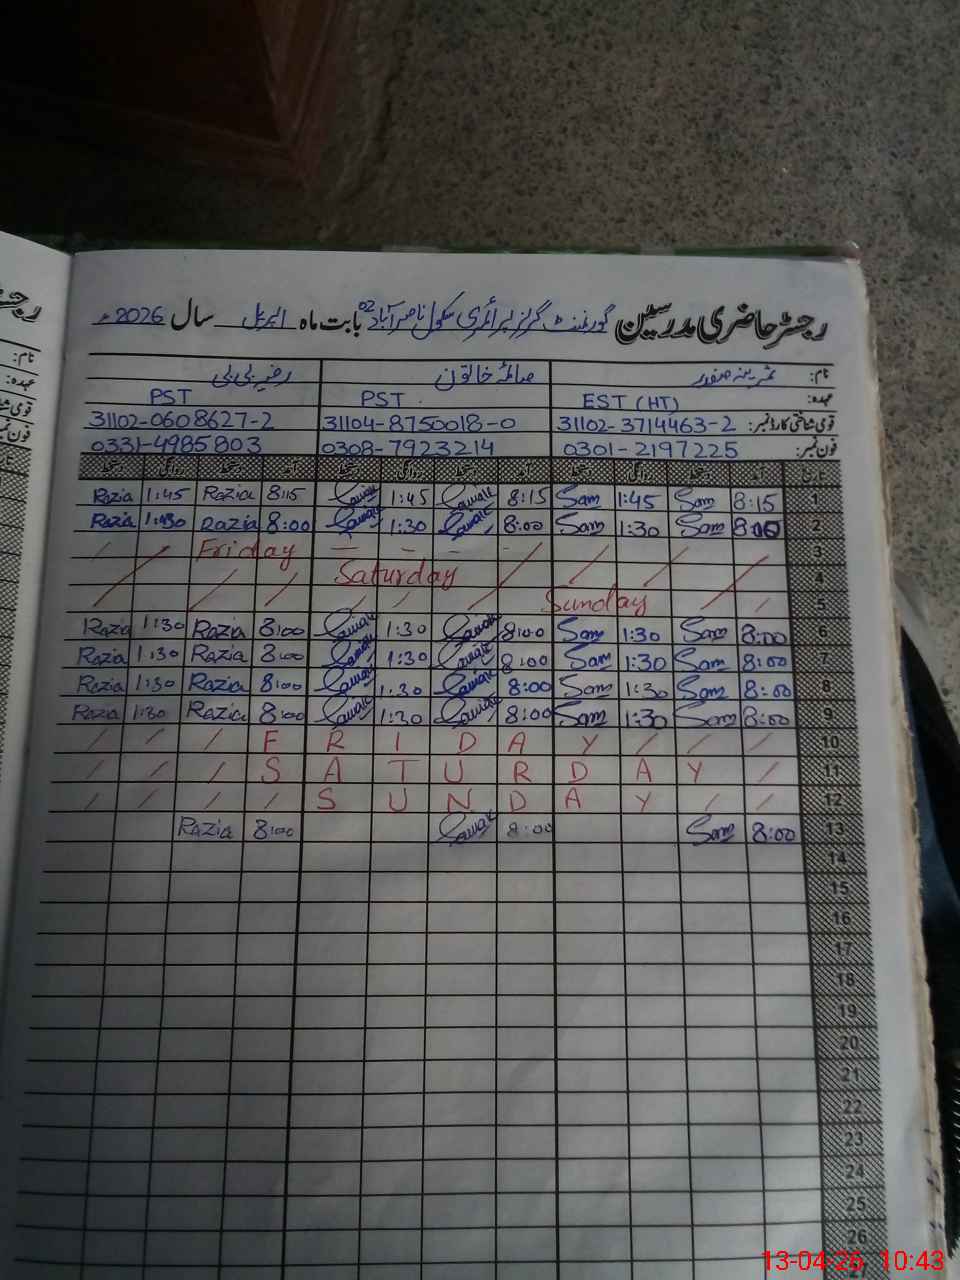 رجسٹر حاضری مدرسین گورنمنٹ گرلز پرائمری سکول ناصر آباد 02 بابت ماہ اپریل سال 2026ء
نام: ثمرینہ صفدر صالحہ خاتون رضیہ بی بی
عہدہ: EST (HT) PST. PST
قومی شناختی کارڈ نمبر: 31102-3714463-2 31104-8750018-0 31102-0608627-2
فون نمبر: 0301-2197225 0308-7923214 0331-4985803
آمد دستخط روانگی دستخط آمد دستخط روانگی دستخط آمد دستخط روانگی دستخط
1 8:15 Sam 1:45 Sam 8:15 1:45 8:15 Razia 1:45 Razia
2 8:00 Sam 1:30 Sam 8:00 1:30 8:00 Razia 1:30 Razia
3 Friday
4 Saturday
5 Sunday
6 8:00 Sam 1:30 Sam 8:00 1:30 8:00 Razia 1:30 Razia
7 8:00 Sam 1:30 Sam 8:00 1:30 8:00 Razia 1:30 Razia
8 8:00 Sam 1:30 Sam 8:00 1:30 8:00 Razia 1:30 Razia
9 8:00 Sam 1:30 Sam 8:00 1:30 8:00 Razia 1:30 Razia
10 F R I D A Y
11 S A T U R D A Y
12 S U N D A Y
13 8:00 Sam 8:00 8:00 Razia
14
15
16
17
18
19
20
21
22
23
24
25
26
13-04-26 10:43